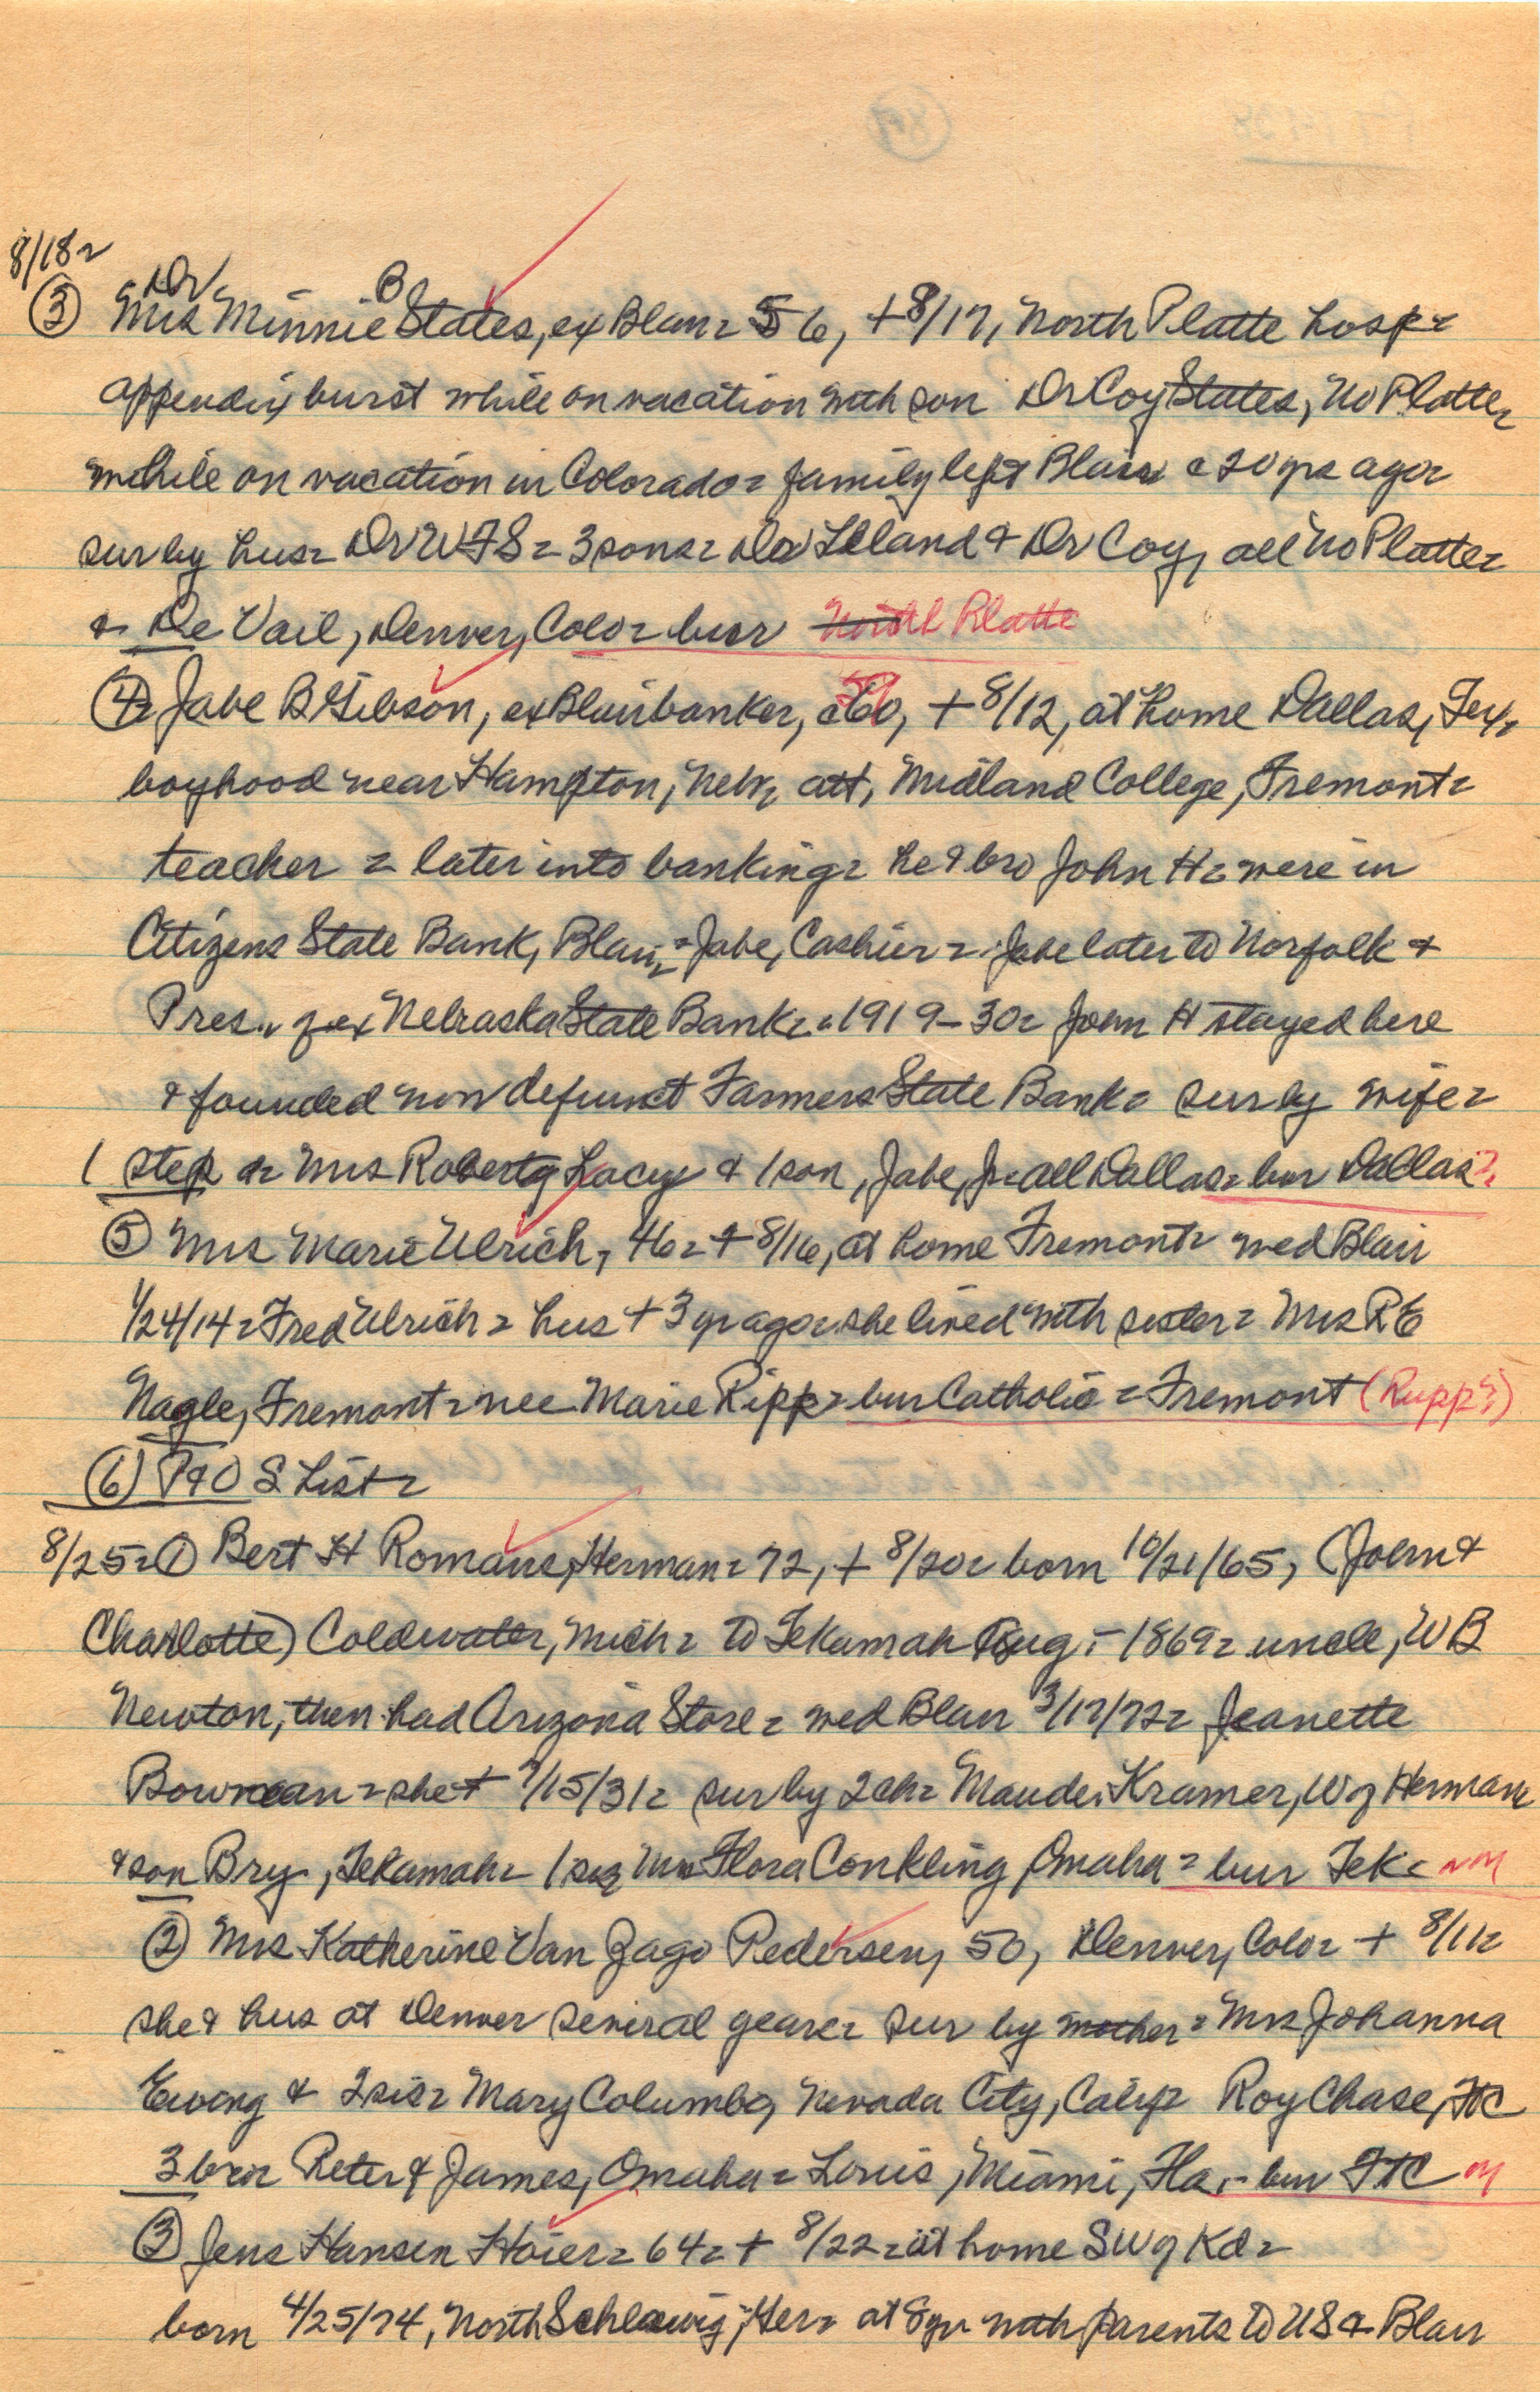 8/18=
Dr B
③ Mrs Minnie States, ex Blair= 56, +8/17, North Platte hosp=
appendix burst while on vacation with son Dr Coy States, No Platte=
while on vacation in Colorado= family left Blair c 20 yrs ago=
sur by hus= Dr WFS= 3 sons= Leland & Dr Coy, all No Platte=
& De Vail, Denver, Colo= bur North Platte
④= Jabe B Gibson, ex Blair banker, c60, 59 +8/12, at home Dallas, Tex=
boyhood near Hampton, Neb= att, Midland College, Fremont=
teacher = later into banking= he & bro John H= were in
Citizens State Bank, Blair= Jabe, Cashier= Jabe later to Norfolk &
Pres. of Nebraska State Bank= 1919-30= John H stayed here
& founded now defunct Farmers State Bank= sur by wife=
1 step d= Mrs Roberta Lacey & 1 son, Jabe, Jr= all Dallas= bur Dallas?
⑤ Mrs Marie Ulrich, 46= +8/16, at home Fremont= wed Blair
1/24/14= Fred Ulrich= hus + 3 yr ago= she lived with sister= Mrs RE
Nagle, Fremont= nee Marie Ripp= bur Catholic= Fremont (Rupp?)
⑥ P&O S List=
8/25=① Bert H Romans, Herman= 72, + 8/20= born 10/21/65, (John &
Charlotte) Coldwater, Mich= to Tekamah Aug - 1869= uncle, WB
Newton, then had Arizona Store= wed Blair 3/17/92= Jeanette
Bowman= she + 9/15/31= sur by 2 ch= Maude Kramer, W of Herman
& son Bry, Tekamah= 1 sis Mrs Flora Conkling, Omaha= bur Tek=
② Mrs Katherine Van Zago Pedersen, 50, Denver, Colo= + 8/11=
she & hus at Denver several years= sur by mother= Mrs Johanna
Ewing & 2 sis= Mary Columbo, Nevada City, Calif= Roy Chase, FtC
3 bro= Peter & James, Omaha= Louis, Miami, Fla,- bur FtC
③ Jens Hansen Hoier= 64= + 8/22= at home SW of Kd=
born 4/25/74, North Schleswig, Ger= at 8 yr with parents to US & Blair